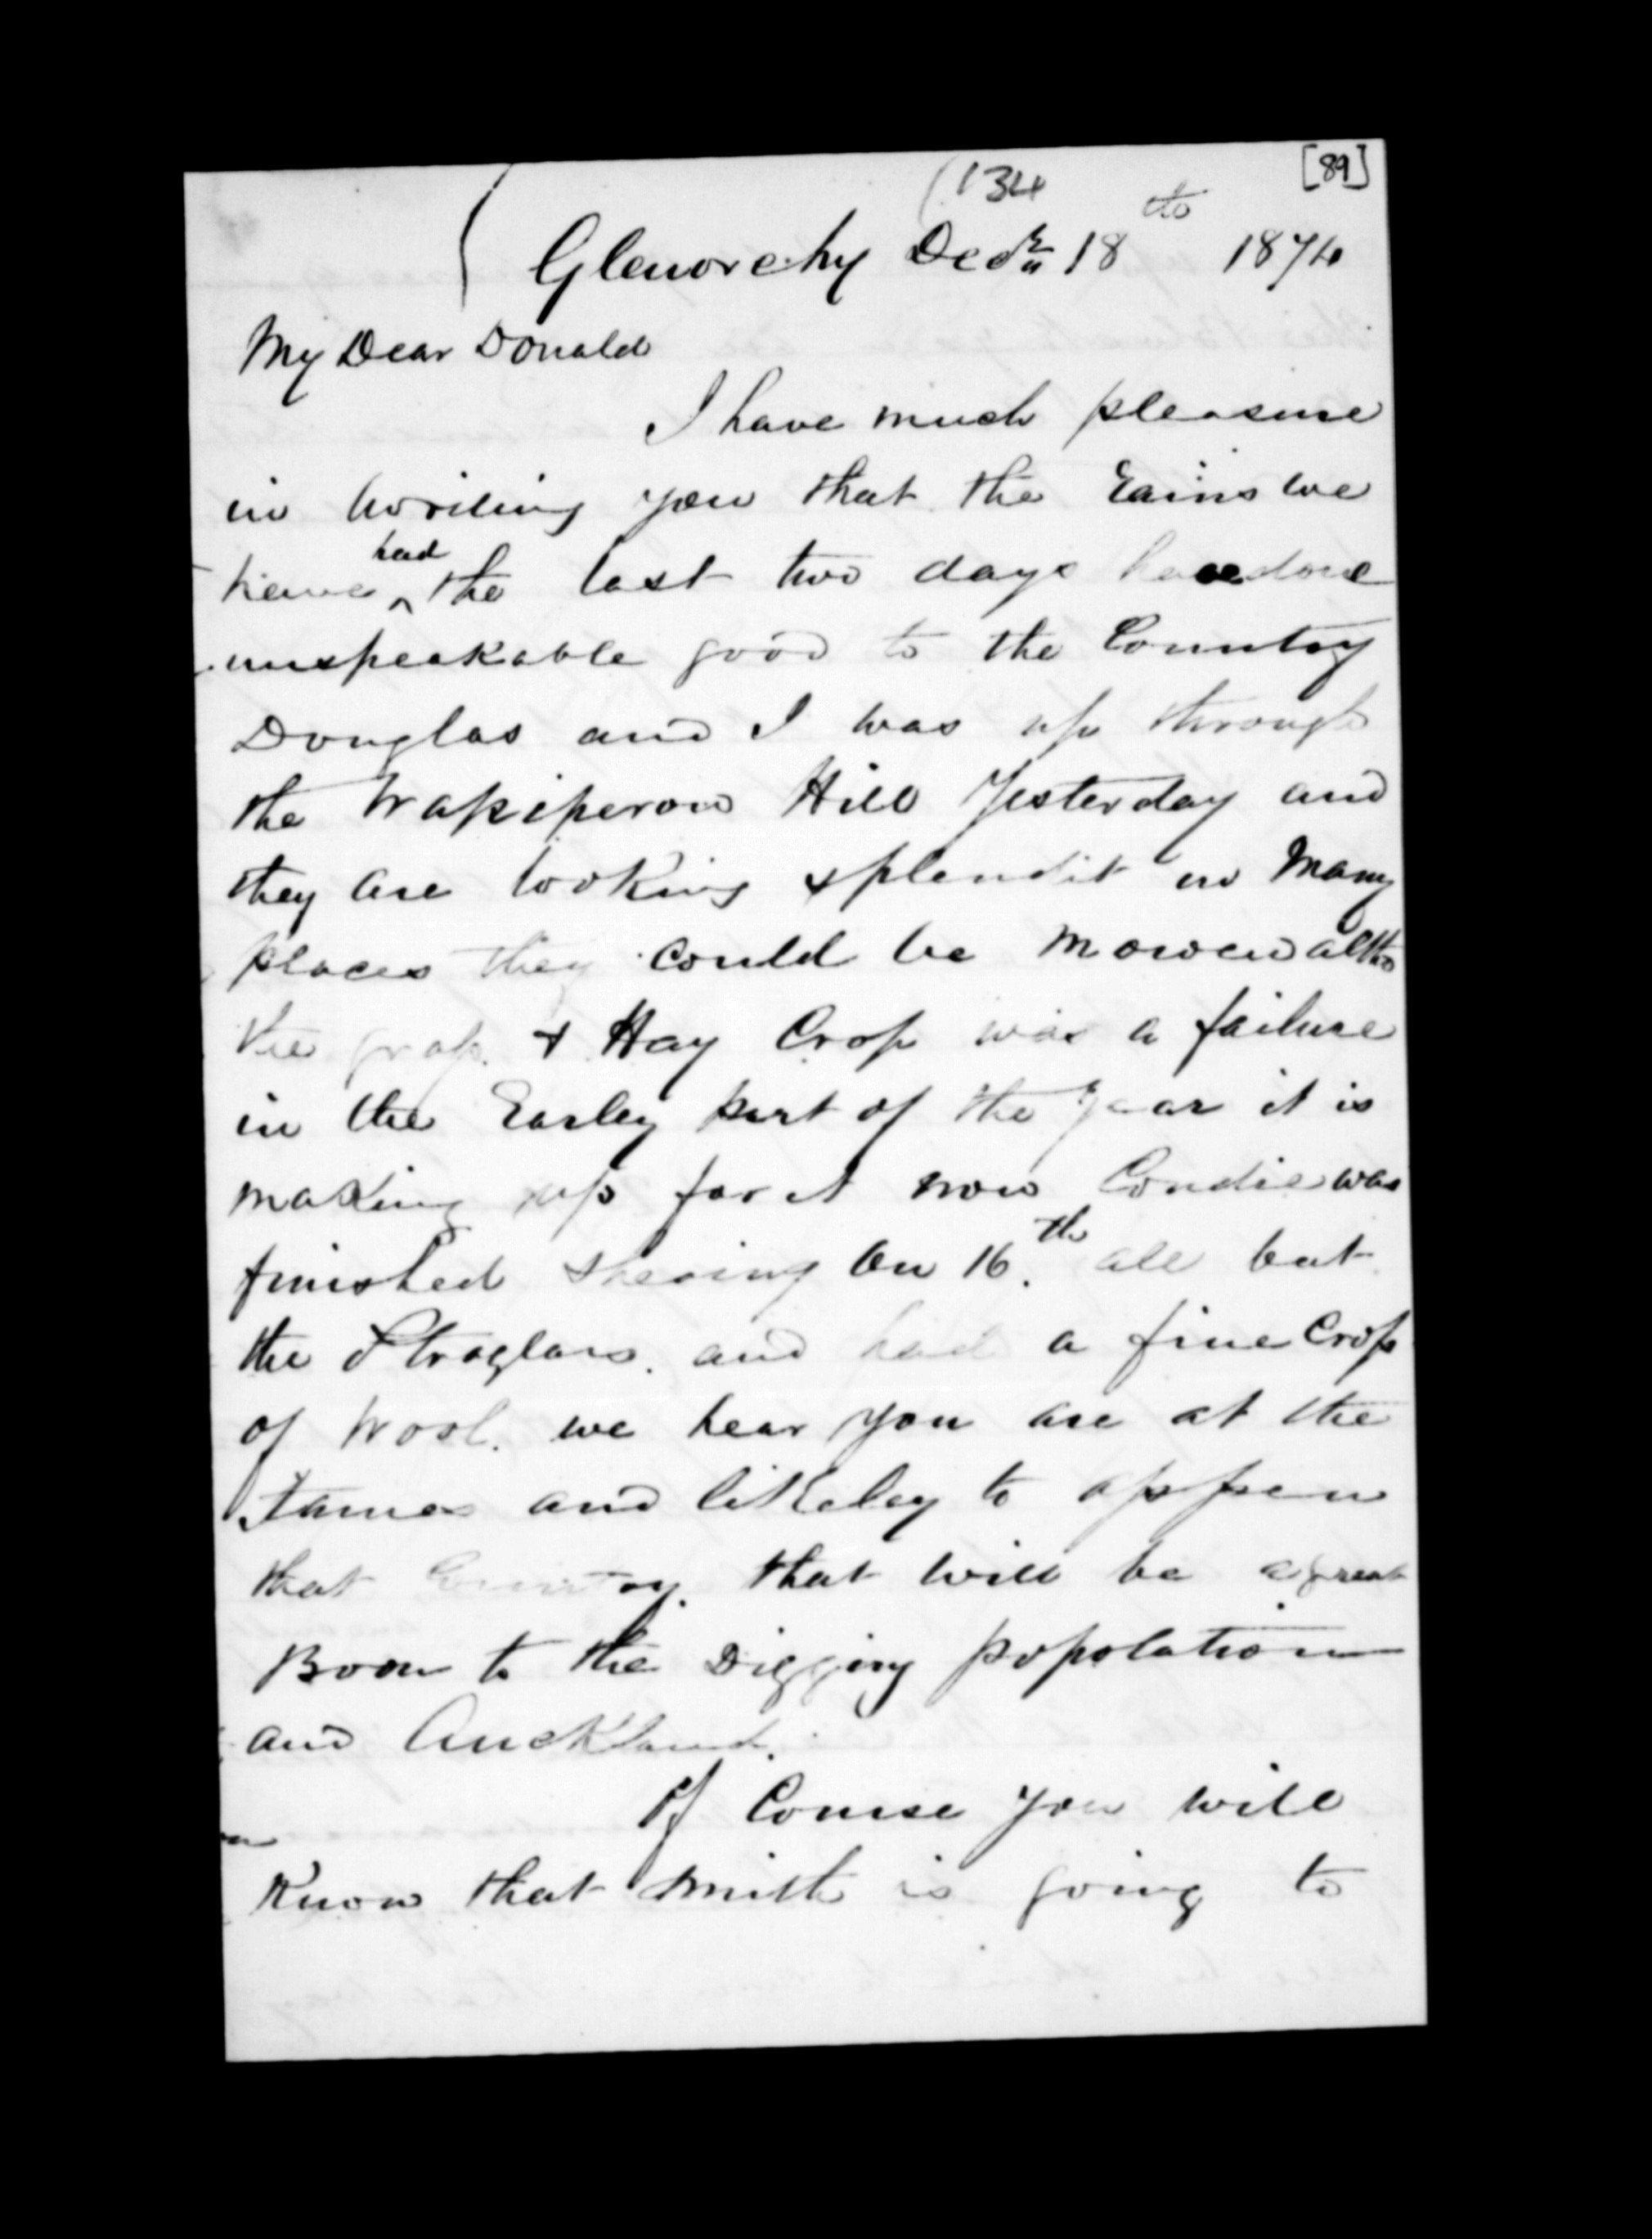 (134 [89]
Glenorchy Decr 18th 1874
My Dear Donald
I have much pleasure
in writing you that the Rains we
have had the last two days have done
unspeakable good to the Country
Douglas and I was up through
the Wapiperow Hill Yesterday and
they are looking splendit in Many
places they could be mowen altho
the grap & Hay Crop was a failure
in the Earley part of the Year it is
making up for it now Condie was
finished Shearing on 16th all but
the Straglars. and had a fine Crop
of Wool. we hear you are at the
Tames and likeley to oppen
that Country. that will be a great
Boon to the Digging popolation
and Auckland.
Of Course you will
Know that Smith is going to